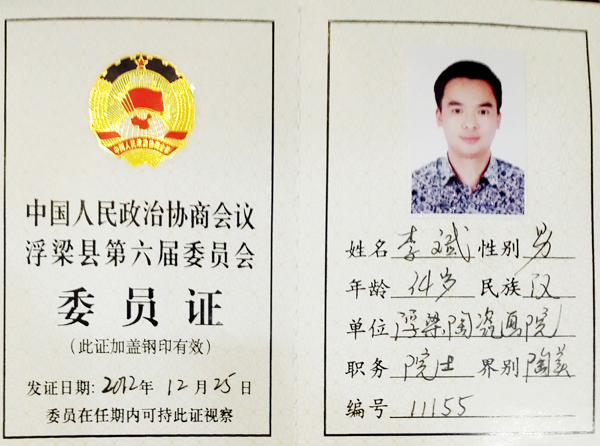 中国人民政治协商会议
中国人民政治协商会议
浮梁县第六届委员会
委员证
(此证加盖钢印有效)
发证日期:2012年12月25日
委员在任期内可持此证视察
姓名 李斌 性别 男
年龄 34岁 民族 汉
单位 浮梁陶瓷画院
职务 院士 界别 陶美
编号 11155